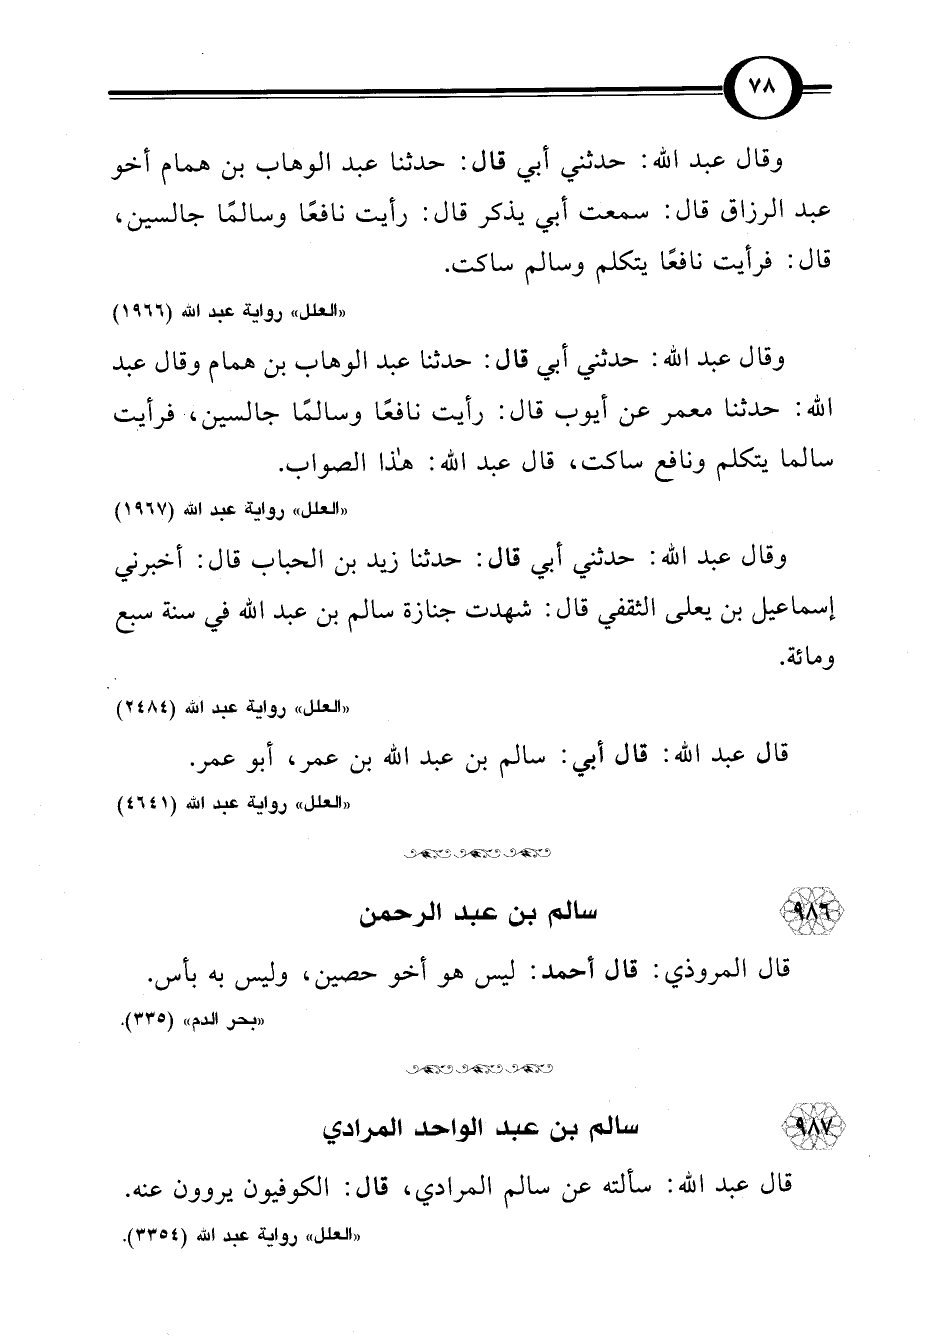 ٧٨
وقال عبد الله: حدثني أبي قال: حدثنا عبد الوهاب بن همام أخو
عبد الرزاق قال: سمعت أبي يذكر قال: رأيت نافعًا وسالمًا جالسين،
قال: فرأيت نافعًا يتكلم وسالم ساكت.
«العلل» رواية عبد الله (١٩٦٦)
وقال عبد الله: حدثني أبي قال: حدثنا عبد الوهاب بن همام وقال عبد
الله: حدثنا معمر عن أيوب قال: رأيت نافعًا وسالمًا جالسين، فرأيت
سالما يتكلم ونافع ساكت، قال عبد الله: هٰذا الصواب.
«العلل» رواية عبد الله (١٩٦٧)
وقال عبد الله: حدثني أبي قال: حدثنا زيد بن الحباب قال: أخبرني
إسماعيل بن يعلى الثقفي قال: شهدت جنازة سالم بن عبد الله في سنة سبع
ومائة.
«العلل» رواية عبد الله (٢٤٨٤)
قال عبد الله: قال أبي: سالم بن عبد الله بن عمر، أبو عمر.
«العلل» رواية عبد الله (٤٦٤١)
٩٨٦ سالم بن عبد الرحمن
قال المروذي: قال أحمد: ليس هو أخو حصين، وليس به بأس.
«بحر الدم» (٣٣٥).
٩٨٧ سالم بن عبد الواحد المرادي
قال عبد الله: سألته عن سالم المرادي، قال: الكوفيون يروون عنه.
«العلل» رواية عبد الله (٣٣٥٤).